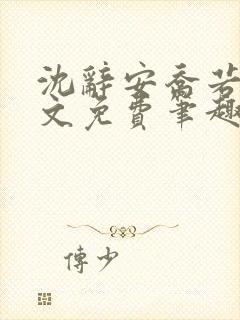 沈辭安喬若
文免費筆趣
傅少